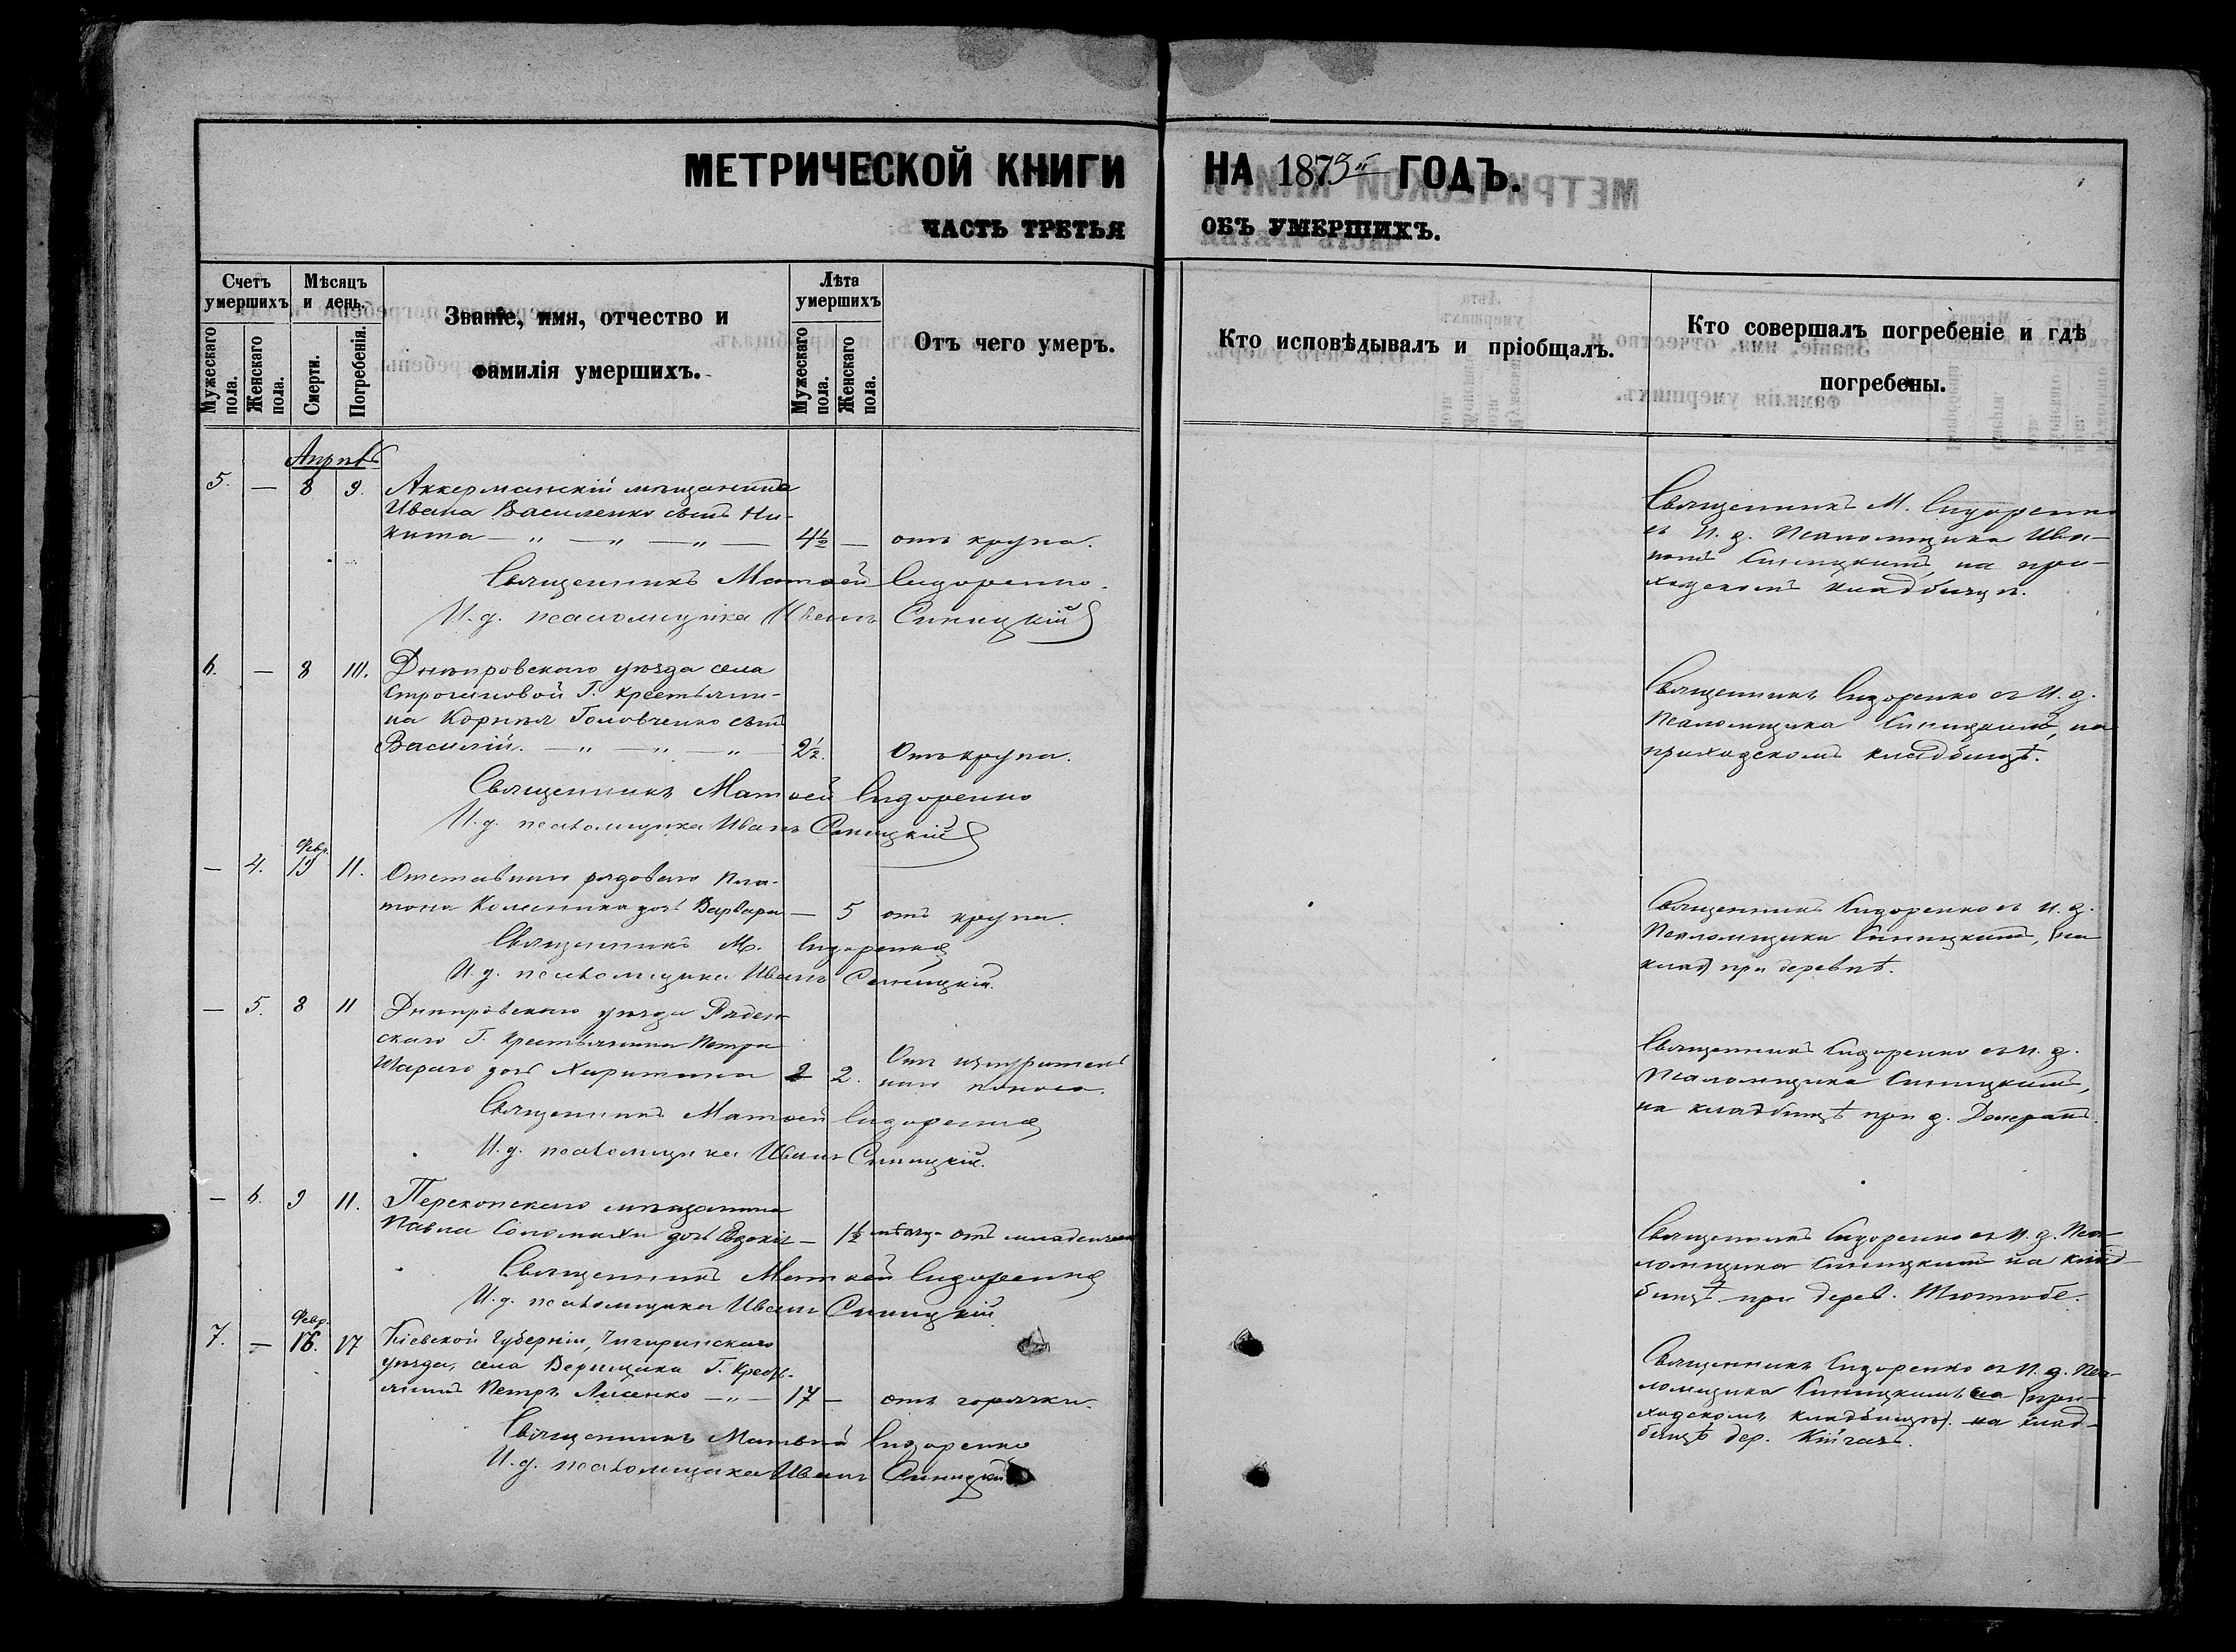 МЕТРИЧЕСКОЙ КНИГИ НА 1875й ГОДЪ.
ЧАСТЬ ТРЕТЬЯ ОБЪ УМЕРШИХЪ.
Счетъ умершихъ
Мужескаго пола.
Женскаго пола.
Мѣсяцъ и день.
Смерти.
Погребенія.
Званіе, имя, отчество и
фамилія умершихъ.
Лѣта умершихъ
Мужескаго пола.
Женскаго пола.
Отъ чего умеръ.
Кто исповѣдывалъ и пріобщалъ.
Кто совершалъ погребеніе и гдѣ
погребены.
5. — 8 9. Аккерманскій мѣщанина
Ивана Василенко сынъ Ни-
кита — „ — „ — „ — 4½ — отъ крупа.
Священникъ Матѳей Сидоренко.
И. д. псаломщика Иванъ Синицкій
Священникъ М. Сидоренко
съ И. д. Псаломщика Ива-
номъ Синицкимъ, на при-
ходскомъ кладбищѣ.
6. — 8 10. Днѣпровскаго уѣзда села
Г. крестьяни-
на Корнѣя Головченко сынъ
Василій. — „ — „ — „ 2½. Отъ крупа.
Священникъ Матѳей Сидоренко
И. д. псаломщика Иванъ Синицкій
Священникъ Сидоренко съ И. д.
Псаломщика Синицкимъ, на
приходскомъ кладбищѣ.
Февр.
— 4. 11. Отставнаго рядоваго Пла-
тона Колесника дочь Варвара — 5 отъ крупа.
Священникъ М. Сидоренко
И. д. псаломщика Иванъ Синицкій.
Священникъ Сидоренко съ И. д.
Псаломщика Синицкимъ, (на
клад) при деревнѣ.
— 5. 8 11 Днѣпровскаго уѣзда
скаго Г. крестьянина Петра
Шараго дочь Харитина 2 2. Отъ изнурител
наго поноса.
Священникъ Матѳей Сидоренко
И. д. псаломщика Иванъ Синицкій.
Священникъ Сидоренко съ И. д.
Псаломщика Синицкимъ,
на кладбищѣ при д.
— 6. 9 11. Перекопскаго мѣщанина
Павла Соломахи дочь Евдокія — 1½ мѣсяц. отъ младенческ
Священникъ Матѳей Сидоренко
И. д. псаломщика Иванъ Синицкій
Священникъ Сидоренко съ И. д. Пса-
ломщика Синицкимъ на клад-
бищѣ при дерев.
Февр.
7. — 16. 17 Кіевской Губерніи, Чигиринскаго
уѣзда, села Г. Кресть-
янинъ Петръ Лисенко — „ — 17 — отъ горячки.
Священникъ Матѳей Сидоренко
И. д. псаломщика Иванъ Синицкій
Священникъ Сидоренко съ И. д. Пса-
ломщика Синицкимъ на (при-
ходскомъ кладбищѣ). на клад-
бищѣ дер.